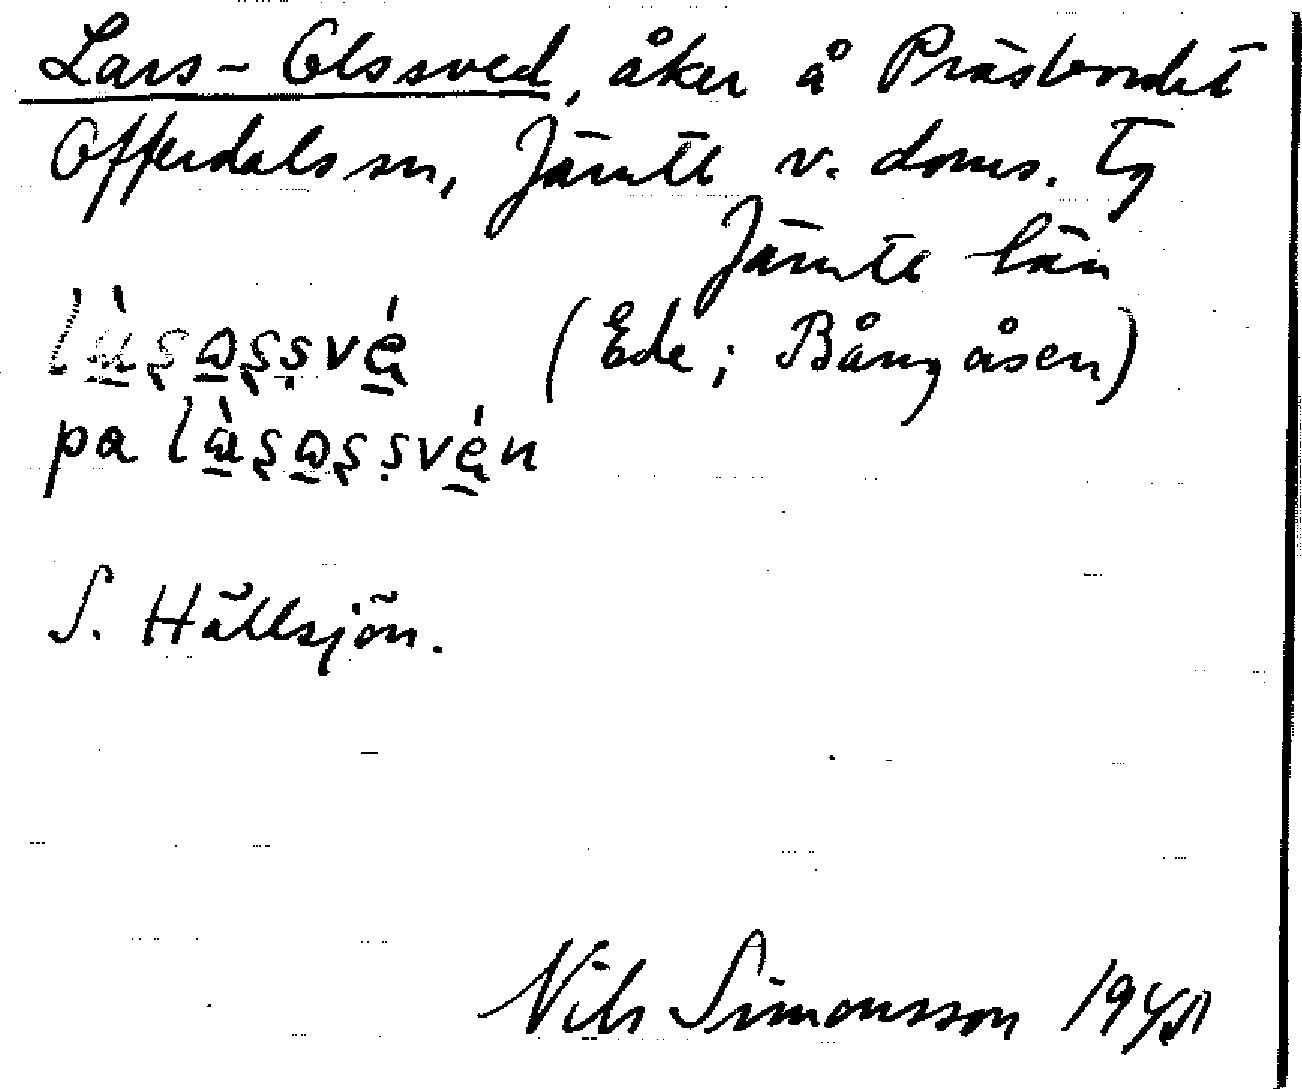 Lars-Olssved, åker å Präsbordet
Offerdals sn, Jämtl v. doms. tg
Jämtl län
(Ede; Bångåsen)
pa
S. Hällsjön.
Nils Simonsson